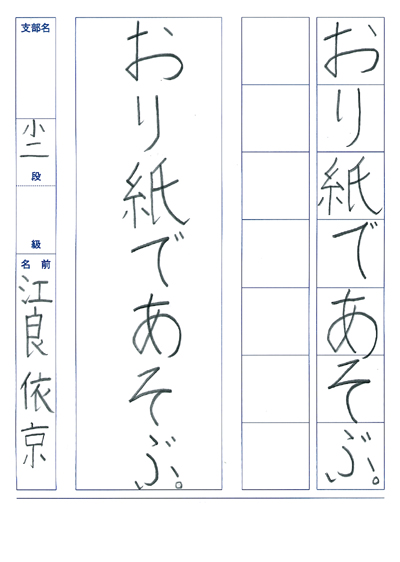 おり紙であそぶ。
おり紙であそぶ。
支部名
小二
段
級
名前
江良依京